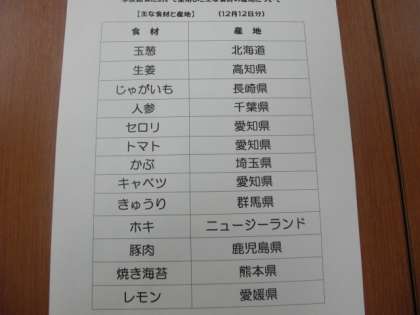 【主な食材と産地】 (12月12日分)
食材 産地
玉葱 北海道
生姜 高知県
じゃがいも 長崎県
人参 千葉県
セロリ 愛知県
トマト 愛知県
かぶ 埼玉県
キャベツ 愛知県
きゅうり 群馬県
ホキ ニュージーランド
豚肉 鹿児島県
焼き海苔 熊本県
レモン 愛媛県